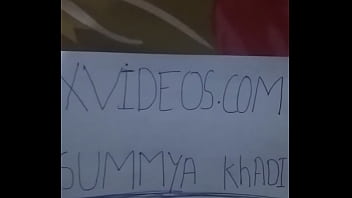 XVIDEOS.COM
SUMMYA KhADI